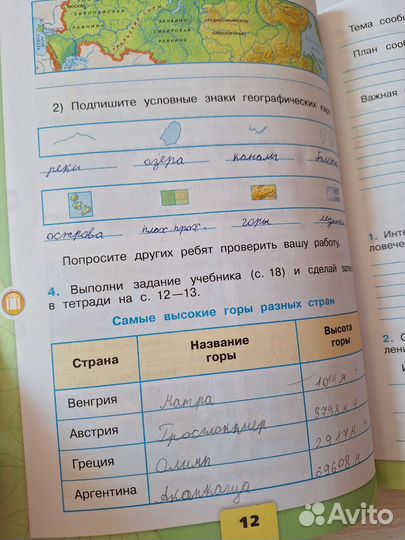 МОСКВА
ЕВРОПЕЙСКАЯ
РАВНИНА
ЗАПАДНО-
СИБИРСКАЯ
РАВНИНА
СРЕДНЕСИБИРСКОЕ
ПЛОСКОГОРЬЕ
2) Подпишите условные знаки географических кар
реки озера каналы
острова плоск. горы
Попросите других ребят проверить вашу работу.
4. Выполни задание учебника (с. 18) и сделай
в тетради на с. 12—13.
Самые высокие горы разных стран
Страна Название горы Высота горы
Венгрия Матра 1014 м
Австрия Гросглоккнер 3798 м
Греция Олимп 2917 м
Аргентина Аконкагуа
12
Тема сооб
План сооб
Важная
1. Инте
ловече
2.
лени
Avito